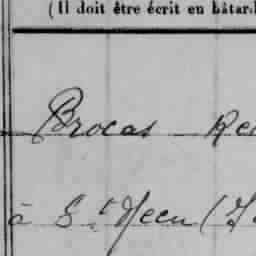 (Il doit être écrit en bâtard
Brocas Re
à St Meen (I